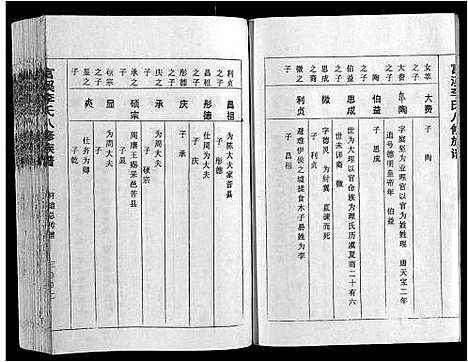 富溪李氏八修族譜
女莘
大费
子 陶
大费之子
陶
字庭坚为业理官以官为姓姓理 唐天宝二年
追号德明皇帝年 伯益
陶之子
伯益
子 恩成
伯益之子
恩成
世为大理以官命族为理氏历虞夏商二十有六
世未详裔 微
恩成裔
微
字德灵 为纣冀 直谏而死
子 利贞
微之子
利贞
避难伊侯之墟揉食木子易姓为李
子 昌祖
利贞之子
昌祖
为陈大夫家普县
子 彤德
昌祖之子
彤德
仕周为大夫
子 庆
彤德之子
庆
子 承
庆之子
硕宗
为周大夫
子 硕宗
承之子
显
周康王赐采邑苦县
子
显之子
炎
为周大夫
仕齐为卿
子 乾
富溪李氏八修族谱